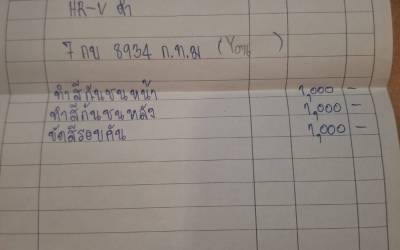 HR-V ดำ
7 กข 8934 ก.ท.ม
ทำสีกันชนหน้า 1,000 –
ทำสีกันชนหลัง 1,000 –
ขัดสีรอบคัน 1,000 –